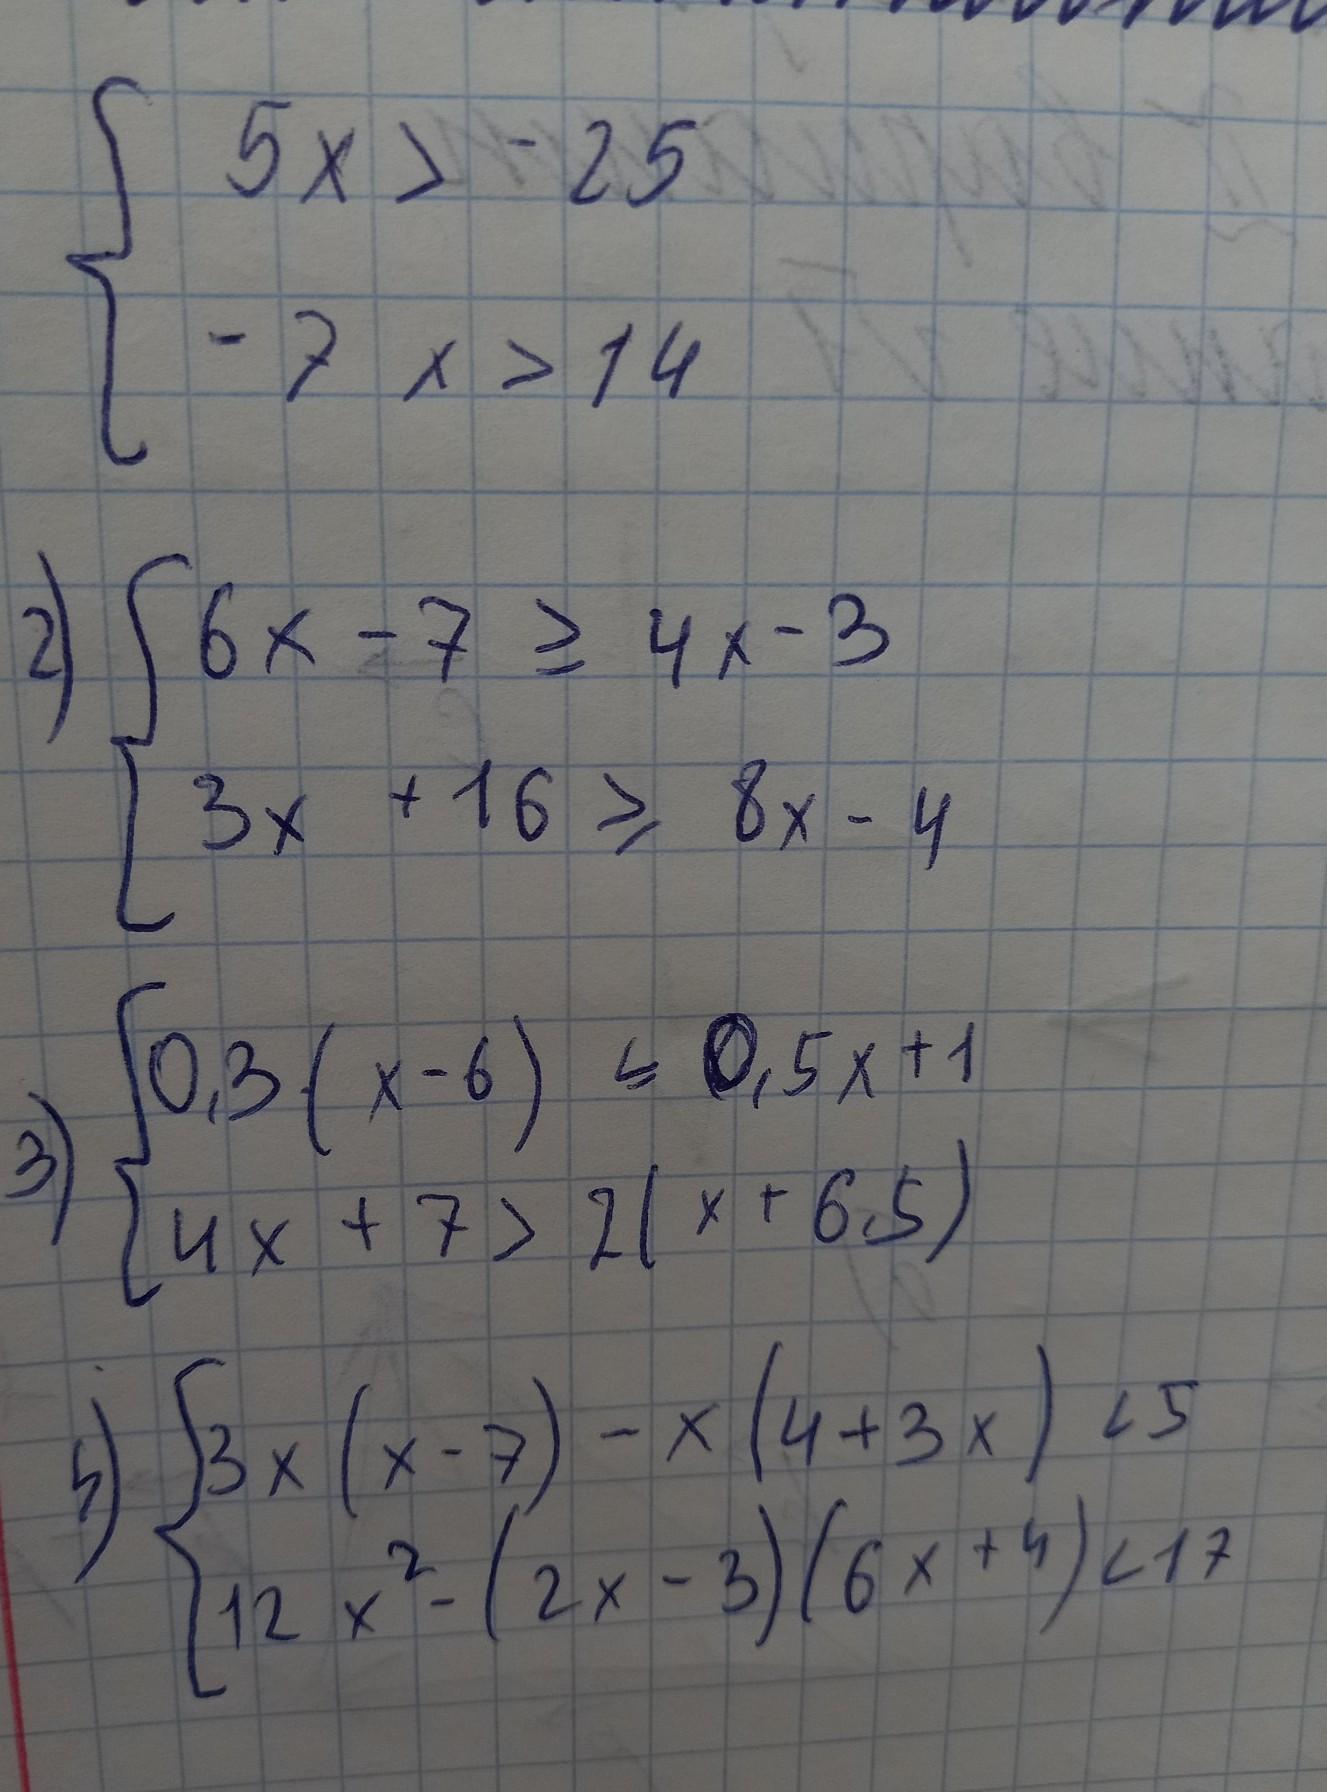 5x > -25
-7x > 14
2) 6x - 7 ≥ 4x - 3
3x + 16 ≥ 8x - 4
3) 0,3 (x - 6) ≤ 0,5x + 1
4x + 7 > 2(x + 6,5)
4) 3x (x - 7) - x (4 + 3x) < 5
12x² - (2x - 3)(6x + 4) < 17